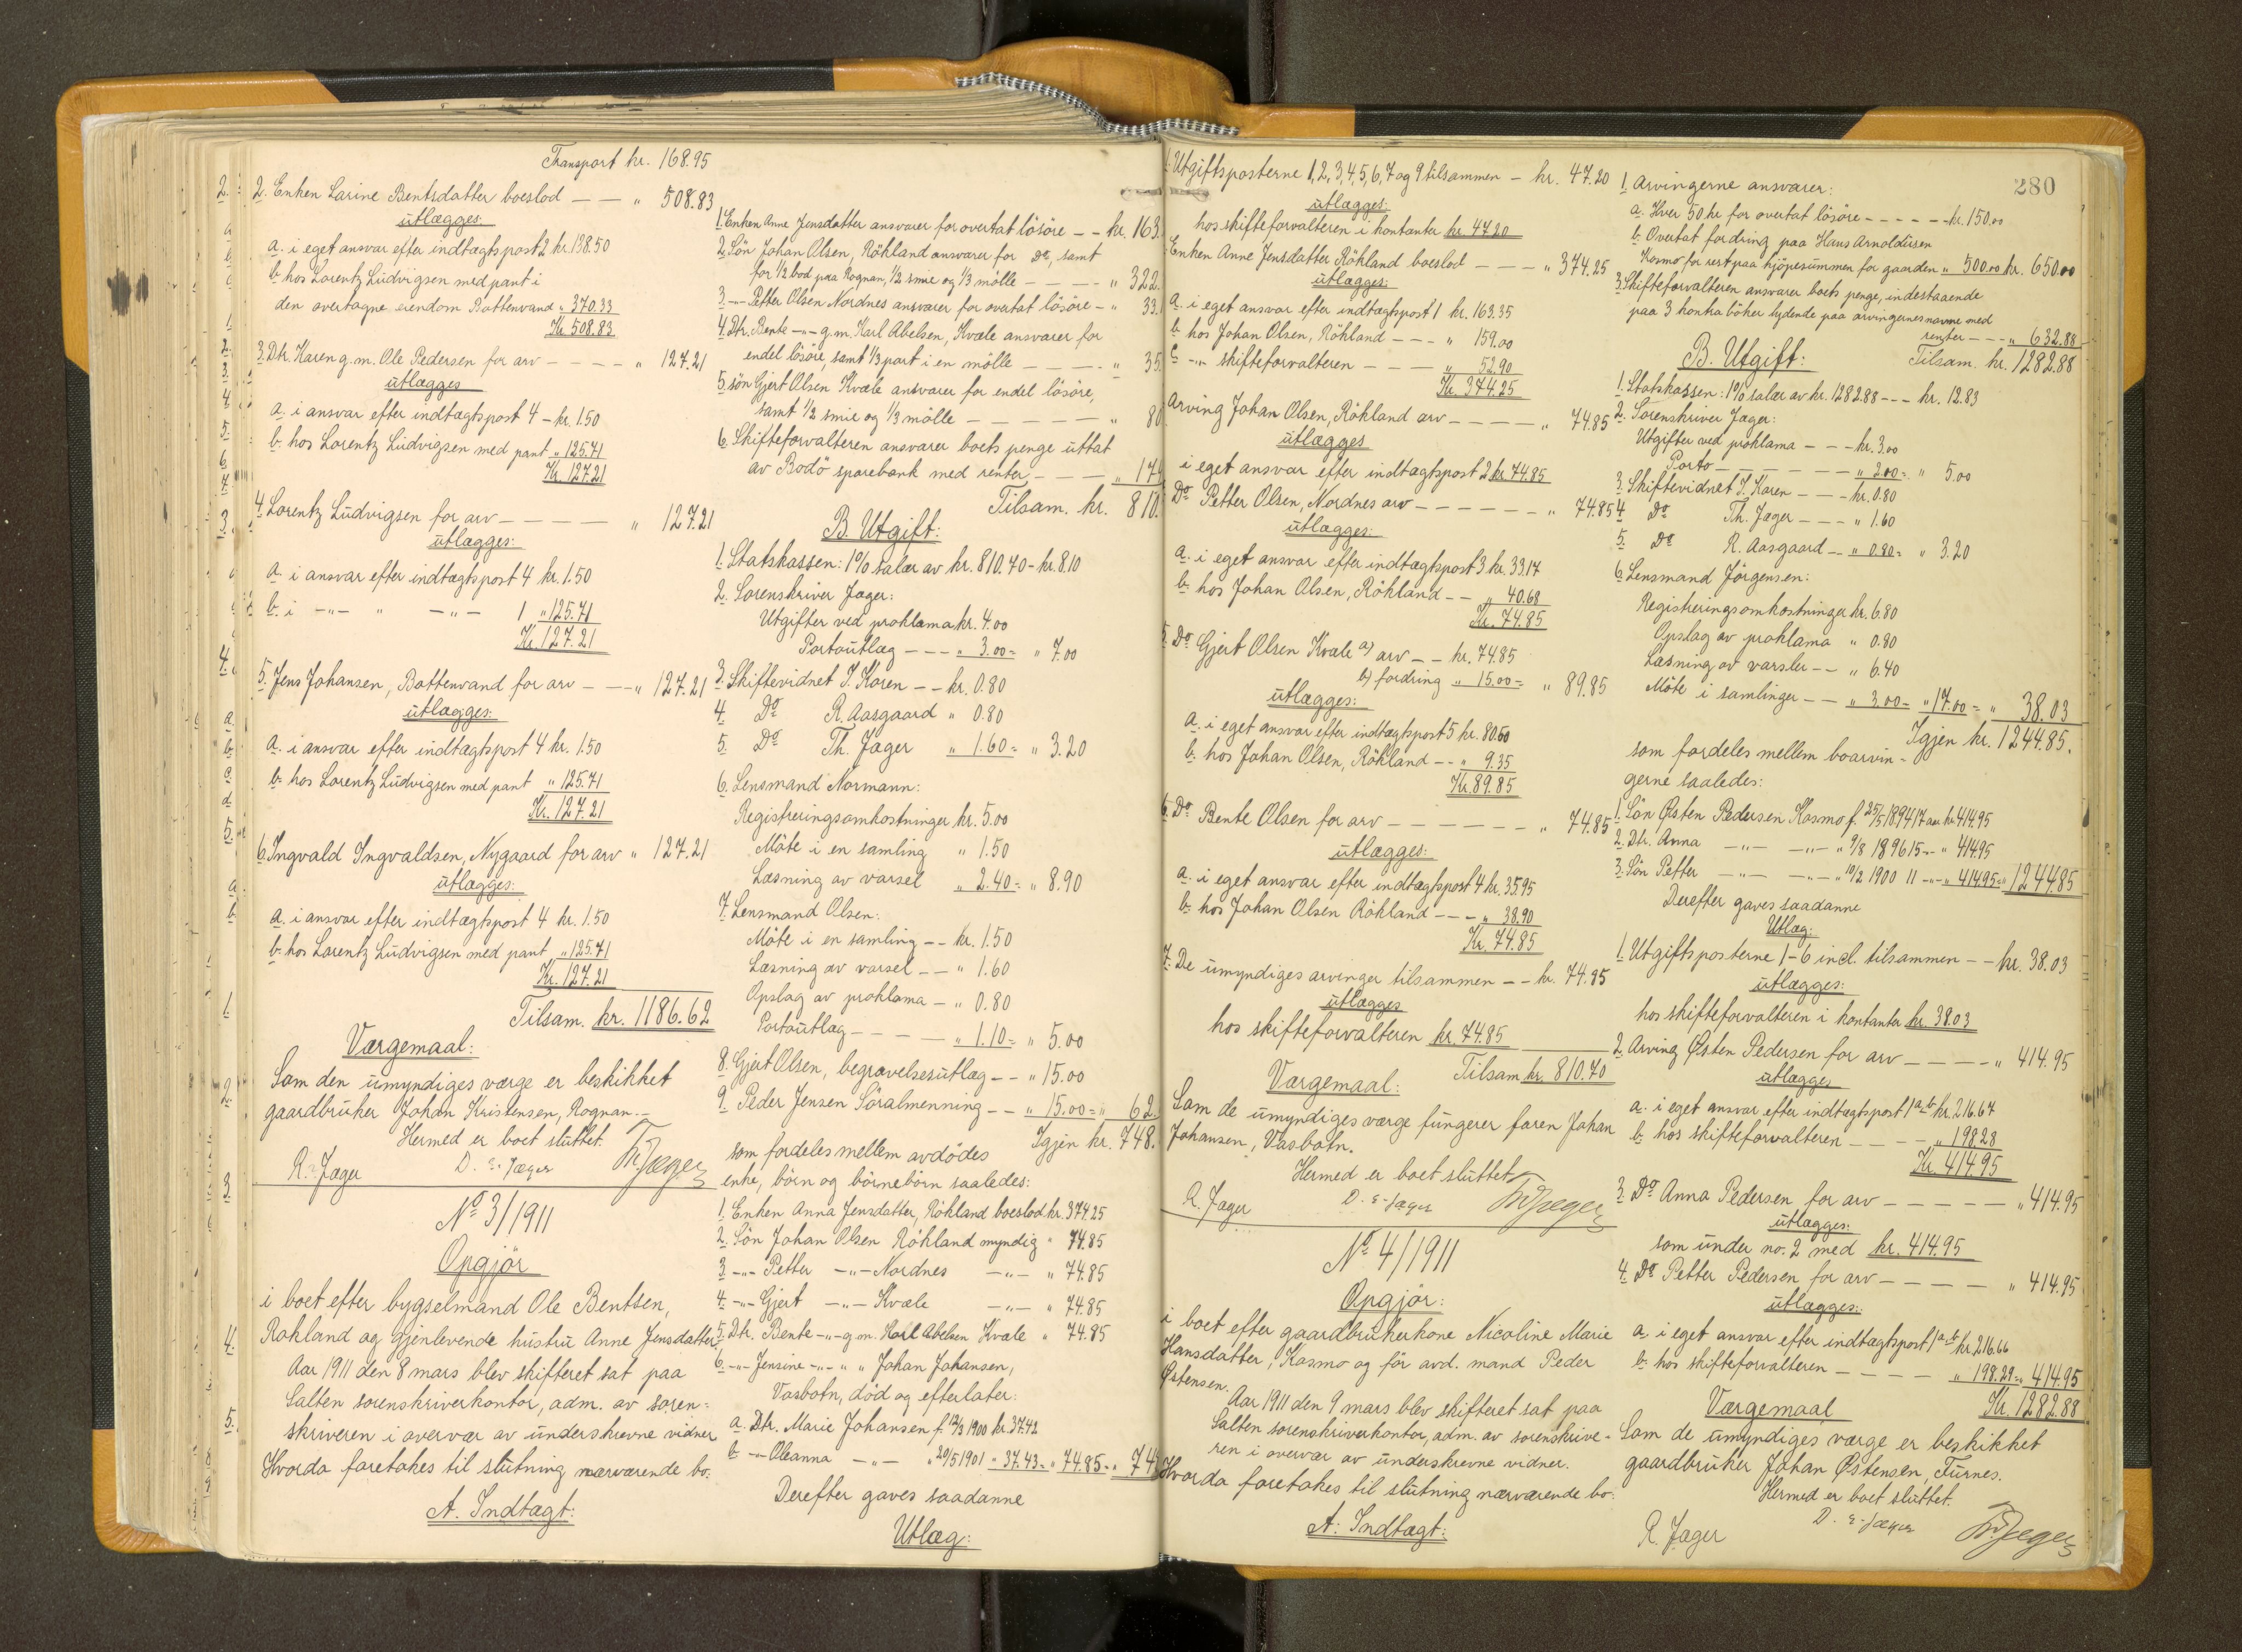 Transport kr. 168.95
2. Enken Larine Bentsdatter boeslod — — " 508.83
utlægges:
a. i eget ansvar efter indtægtspost 2 kr. 138.50
b. hos Lorentz Ludvigsen med pant i
den overtagne eiendom Bottenvand " 370.33
Kr. 508.83
3. Dtr. Karen g.m. Ole Pedersen for arv — — — — " 127.21
utlægges
a. i ansvar efter indtægtspost 4 – kr. 1.50
b. hos Lorentz Ludvigsen med pant " 125.71
Kr. 127.21
4. Lorentz Ludvigsen for arv — — — — — " 127.21
utlægges:
a. i ansvar efter indtægtspost 4 kr. 1.50
b. i –"– " –"– 1 " 125.71
Kr. 127.21
5. Jens Johansen, Bottenvand for arv — — " 127.21
utlægges:
a. i ansvar efter indtægtspost 4 kr. 1.50
b. hos Lorentz Ludvigsen med pant " 125.71
Kr. 127.21
6. Ingvald Ingvaldsen, Nygaard for arv " 127.21
utlægges:
a. i ansvar efter indtægtspost 4 kr. 1.50
b. hos Lorentz Ludvigsen med pant " 125.71
Kr. 127.21
Tilsam. kr. 1186.62
Værgemaal:
Som den umyndiges værge er beskikket
gaardbruker Johan Kristensen, Rognan.–
Hermed er boet sluttet.
R. Jæger D. E. Jæger Th. Jæger
No 3/1911
Opgjör
i boet efter bygselmand Ole Bentsen,
Rökland og gjenlevende hustru Anne Jensdatter.
Aar 1911 den 8 mars blev skifteret sat paa
Salten sorenskriverkontor, adm. av soren=
skriveren i overvær av underskrevne vidner.
Hvorda foretokes til slutning nærværende bo.
A. Indtægt:
1. Enken Anne Jensdatter ansvarer for overtat lösöre – – kr. 163.
2. Sön Johan Olsen, Rökland ansvarer for Do, samt
for 1/2 bod paa Rognan, 1/2 smie og 1/3 mölle — — — — " 322.
3. –"– Petter Olsen Nordnes ansvarer for overtat lösöre – " 33.
4. Dtr. Bente –"– g.m. Karl Abelsen, Kvæle ansvarer for
endel lösöre, samt 1/3 part i en mölle — — — — " 35
5. sön Gjert Olsen Kvæle ansvarer for endel lösöre,
samt 1/2 smie og 1/3 mölle — — — — — " 80
6. Skifteforvalteren ansvarer boets penge uttat
av Bodö sparebank med renter — — — " 174
Tilsam. kr. 810.
B. Utgift:
1. Statskassen: 1% salær av kr. 810.70 – kr. 8.10
2. Sorenskriver Jæger:
Utgifter ved proklama kr. 4.00
Portoutlæg – – – " 3.00 = " 7.00
3. Skiftevidnet I. Koren – – kr. 0.80
4. Do R. Aasgaard " 0.80
5. Do Th. Jæger " 1.60 = " 3.20
6. Lensmand Normann:
Registreringsomkostninger kr. 5.00
Möte i en samling " 1.50
Læsning av varsel " 2.40 = " 8.90
7. Lensmand Olsen:
Möte i en samling – – kr. 1.50
Læsning av varsel – – " 1.60
Opslag av proklama – " 0.80
Portoutlæg – – – " 1.10 = " 5.00
8. Gjert Olsen, begravelsesutlæg – – " 15.00
9. Peder Jensen Söralmenning – – " 15.00 = " 62.
Igjen kr. 748.
som fordeles mellem avdödes
enke, börn og börnebörn saaledes:
1. Enken Anna Jensdatter, Rökland boeslod kr. 374.25
2. Sön Johan Olsen Rökland myndig " 74.85
3. –"– Petter –"– Nordnes –"– " 74.85
4. –"– Gjert –"– Kvæle –"– " 74.85
5. Dtr. Bente –"– g.m. Karl Abelsen Kvæle " 74.85
6. –"– Jensine –"– " " Johan Johansen,
Vasbotn, död og efterlater:
a. Dtr. Marie Johansen f. 12/3 1900 kr. 37.42
b. –"– Oleanna –"– " 20/5 1901 " 37.43 = " 74.85 = " 74
Derefter gaves saadanne
Utlæg:
1. Utgiftsposterne 1, 2, 3, 4, 5, 6, 7 og 9 tilsammen – kr. 47.20
utlægges:
hos skifteforvalteren i kontanter kr. 47.20
Enken Anne Jensdatter Rökland boeslod — — — " 374.25
utlægges:
a. i eget ansvar efter indtægtspost 1 kr. 163.35
b. hos Johan Olsen, Rökland – – – " 159.00
c. –"– skifteforvalteren — — — " 52.90
Kr. 374.25
Arving Johan Olsen, Rökland arv — — — — " 74.85
utlægges
i eget ansvar efter indtægtspost 2 kr. 74.85
Do Petter Olsen, Nordnes arv — — — — — " 74.85
utlægges:
a. i eget ansvar efter indtægtspost 3 kr. 33.17
b. hos Johan Olsen, Rökland – – " 40.68
Kr. 74.85
5. Do Gjert Olsen Kvæle a) arv – – kr. 74.85
b) fordring " 15.00 = " 89.85
utlægges:
a. i eget ansvar efter indtægtspost 5 kr. 80.50
b. hos Johan Olsen, Rökland – – " 9.35
Kr. 89.85
6. Do Bente Olsen for arv — — — — — " 74.85
utlægges:
a. i eget ansvar efter indtægtspost 4 kr. 35.95
b. hos Johan Olsen Rökland – – – " 38.90
Kr. 74.85
7. De umyndiges arvinger tilsammen – – kr. 74.85
utlægges
hos skifteforvalteren kr. 74.85
Tilsam kr. 810.70
Værgemaal:
Som de umyndiges værge fungerer faren Johan
Johansen, Vasbotn.
Hermed er boet sluttet
R. Jæger D. E. Jæger Th. Jæger
No 4/1911
Opgjör:
i boet efter gaardbrukerkone Nicoline Marie
Hansdatter, Kosmo og för avd. mand Peder
Østensen.
Aar 1911 den 9 mars blev skifteret sat paa
Salten sorenskriverkontor, adm. av sorenskrive-
ren i overvær av underskrevne vidner.
Hvorda foretokes til slutning nærværende bo:
A. Indtægt:
280
1. Arvingerne ansvarer:
a. Hver 50 kr for overtat lösöre – – – – – kr. 150.00
b. Overtat fordring paa Hans Arnoldusen
Kosmo for rest paa kjöpesummen for gaarden " 500.00 kr. 650.00
3. Skifteforvalteren ansvarer boets penge, indestaaende
paa 3 kontra böker lydende paa arvingernes navne med
renter – – – " 632.88
Tilsam. kr. 1282.88
B. Utgift:
1. Statskassen: 1% salær av kr. 1282.88 – – – kr. 12.83
2. Sorenskriver Jæger:
Utgifter ved proklama – – – kr. 3.00
Porto — — — — — " 2.00 = " 5.00
3. Skiftevidnet I. Koren – – – kr. 0.80
4. Do Th. Jæger – – – " 1.60
5. Do R. Aasgaard – – " 0.80 = " 3.20
6. Lensmand Jörgensen:
Registreringsomkostninger kr. 6.80
Opslag av proklama " 0.80
Læsning av varsler – – " 6.40
Möte i samlinger – – " 3.00 = " 17.00 = " 38.03
Igjen kr. 1244.85.
som fordeles mellem boarvin-
gerne saaledes:
1. Sön Østen Pedersen Kosmo f. 25/5 1894 17 aar kr. 414.95
2. Dtr. Anna –"– –"– " 9/8 1896 15 –"– " 414.95
3. Sön Petter –"– –"– " 10/2 1900 11 –"– " 414.95 = " 1244.85
Derefter gaves saadanne
Utlæg:
1. Utgiftsposterne 1–6 incl. tilsammen – – kr. 38.03
utlægges:
hos skifteforvalteren i kontanter kr. 38.03
2. Arving Østen Pedersen for arv — — — — " 414.95
utlægges
a. i eget ansvar efter indtægtspost 1 a-b kr. 216.67
b. hos skifteforvalteren — — — — " 198.28
Kr. 414.95
3. Do Anna Pedersen for arv — — — — — " 414.95
utlægges:
som under no. 2 med kr. 414.95
4. Do Petter Pedersen for arv — — — — " 414.95
utlægges:
a. i eget ansvar efter indtægtspost 1 a-b kr. 216.66
b. hos skifteforvalteren — — — — " 198.29 = " 414.95
Kr. 1282.88
Værgemaal
Som de umyndiges værge er beskikket
gaardbruker Johan Østensen, Furnes.
Hermed er boet sluttet.
R. Jæger D. E. Jæger Th. Jæger